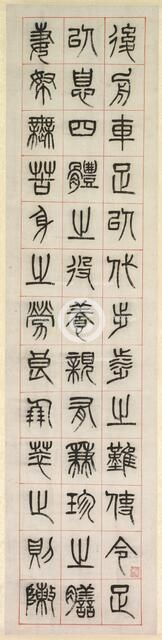 後舟車足以代步涉之難使令足
以息四體之役養親有兼珍之膳
妻孥無苦身之勞良朋萃止則陳